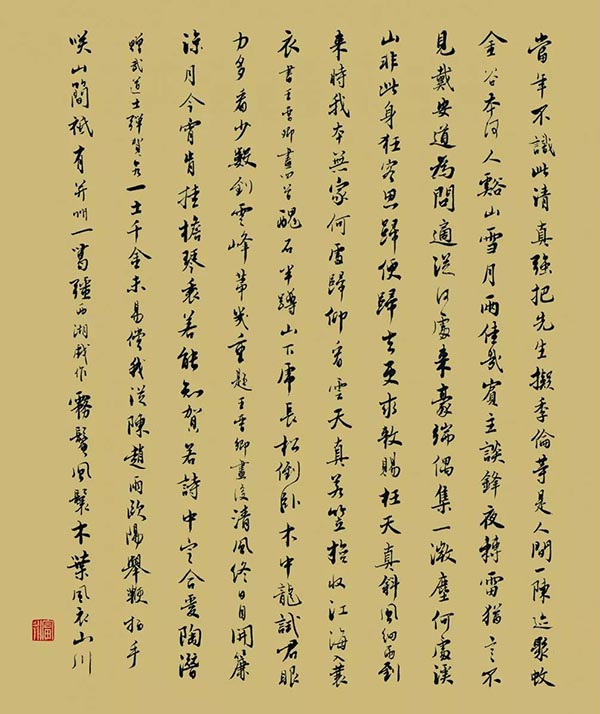 當年不識此清真強把先生擬季倫等是人間一陳迹聚蚊
金谷本何人谿山雪月兩佳哉賓主談鋒夜轉雷猶言不
見戴安道為問適從何處來豪端偶集一微塵何處溪
山非此身狂客思歸便歸去更求敕賜枉天真斜風細雨到
來時我本無家何處歸仰看雲天真若笠旋收江海入蓑
衣書王晉卿畫四首醜石半蹲山下虎長松倒臥木中龍試君眼
力多看少數到雲峰第幾重題王晉卿畫後清風終日自開簾
涼月今宵肯挂檐琴裏若能知賀若詩中定合愛陶潛
贈武道士彈賀若一士千金未易償我從陳趙兩歐陽舉鞭拍手
咲山簡祗有并州一葛彊西湖戲作霧鬢風鬟木葉風衣山川